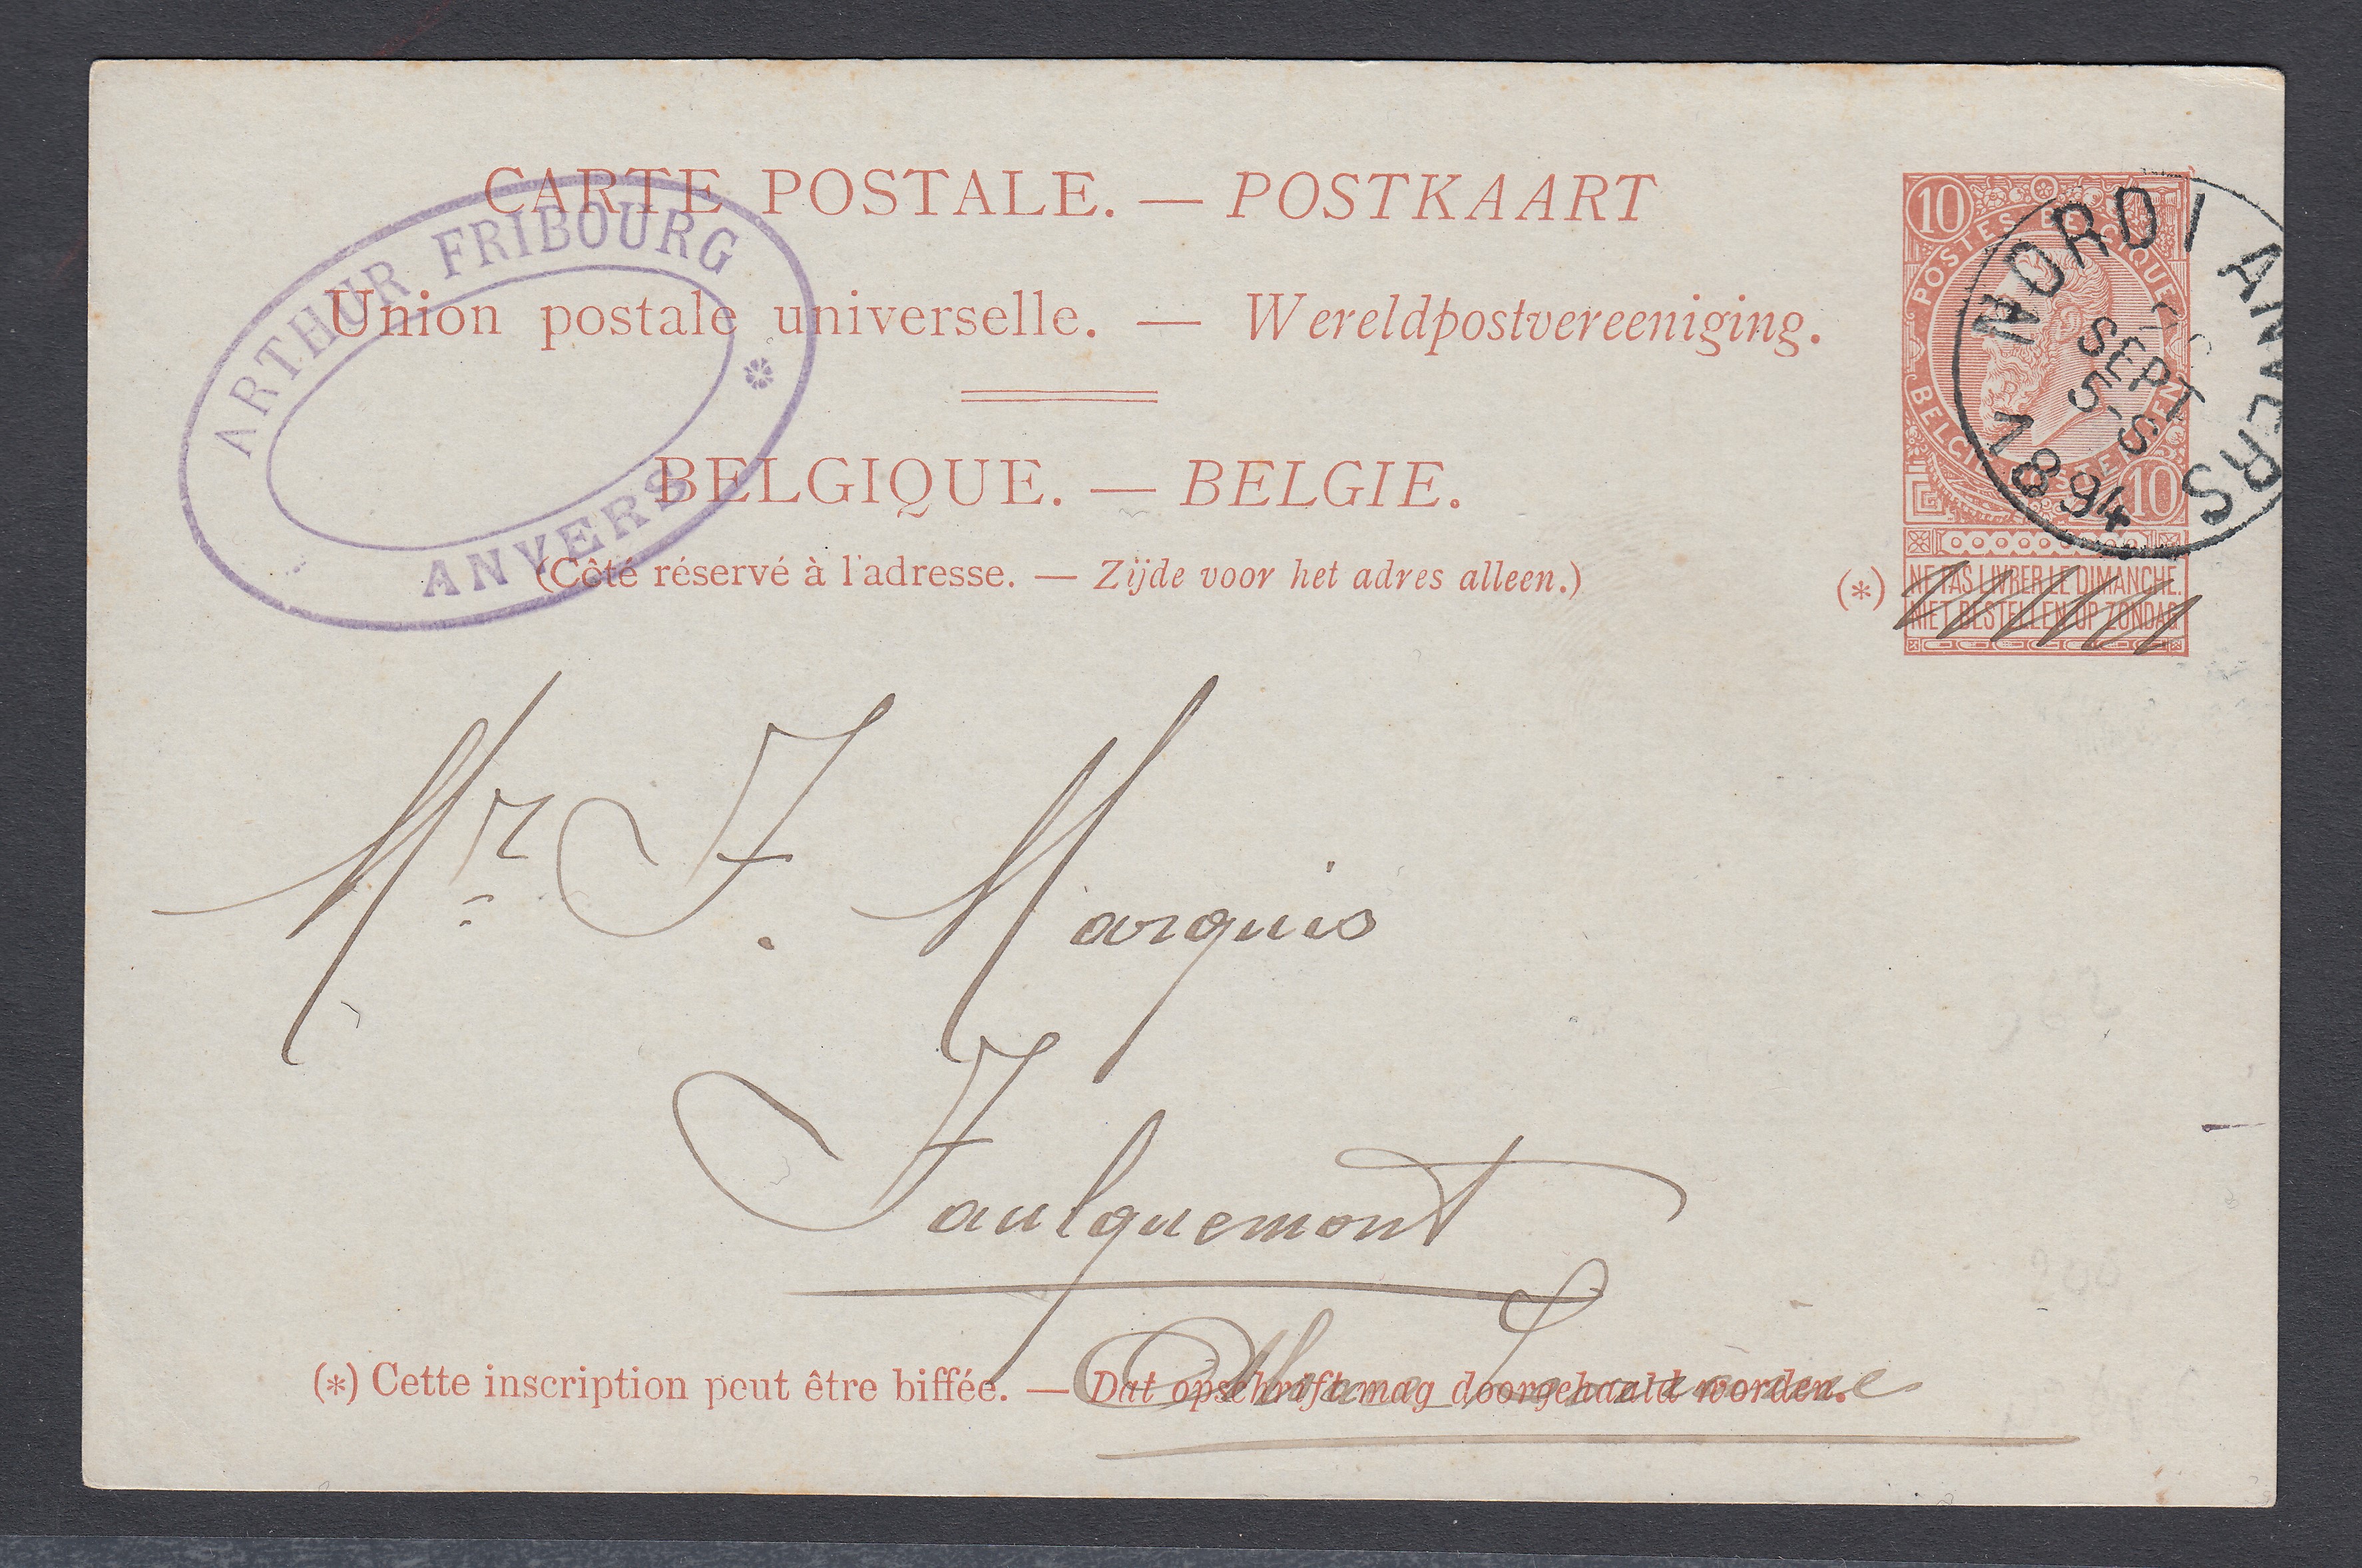 CARTE POSTALE. — POSTKAART
Union postale universelle. — Wereldpostvereeniging.
BELGIQUE. — BELGIE.
(Côté réservé à l'adresse. — Zijde voor het adres alleen.)
ARTHUR FRIBOURG
ANVERS
10
POSTES BELGIQUE
BELGIË POSTERIJEN
10
NORD 1 ANVERS
SEPT
5-S
1894
(*) NE PAS LIVRER LE DIMANCHE.
NIET BESTELLEN OP ZONDAG.
Mr. F. Marquis
Faulquemont
Alsace Lorraine
(*) Cette inscription peut être biffée. — Dat opschrift mag doorgehaald worden.